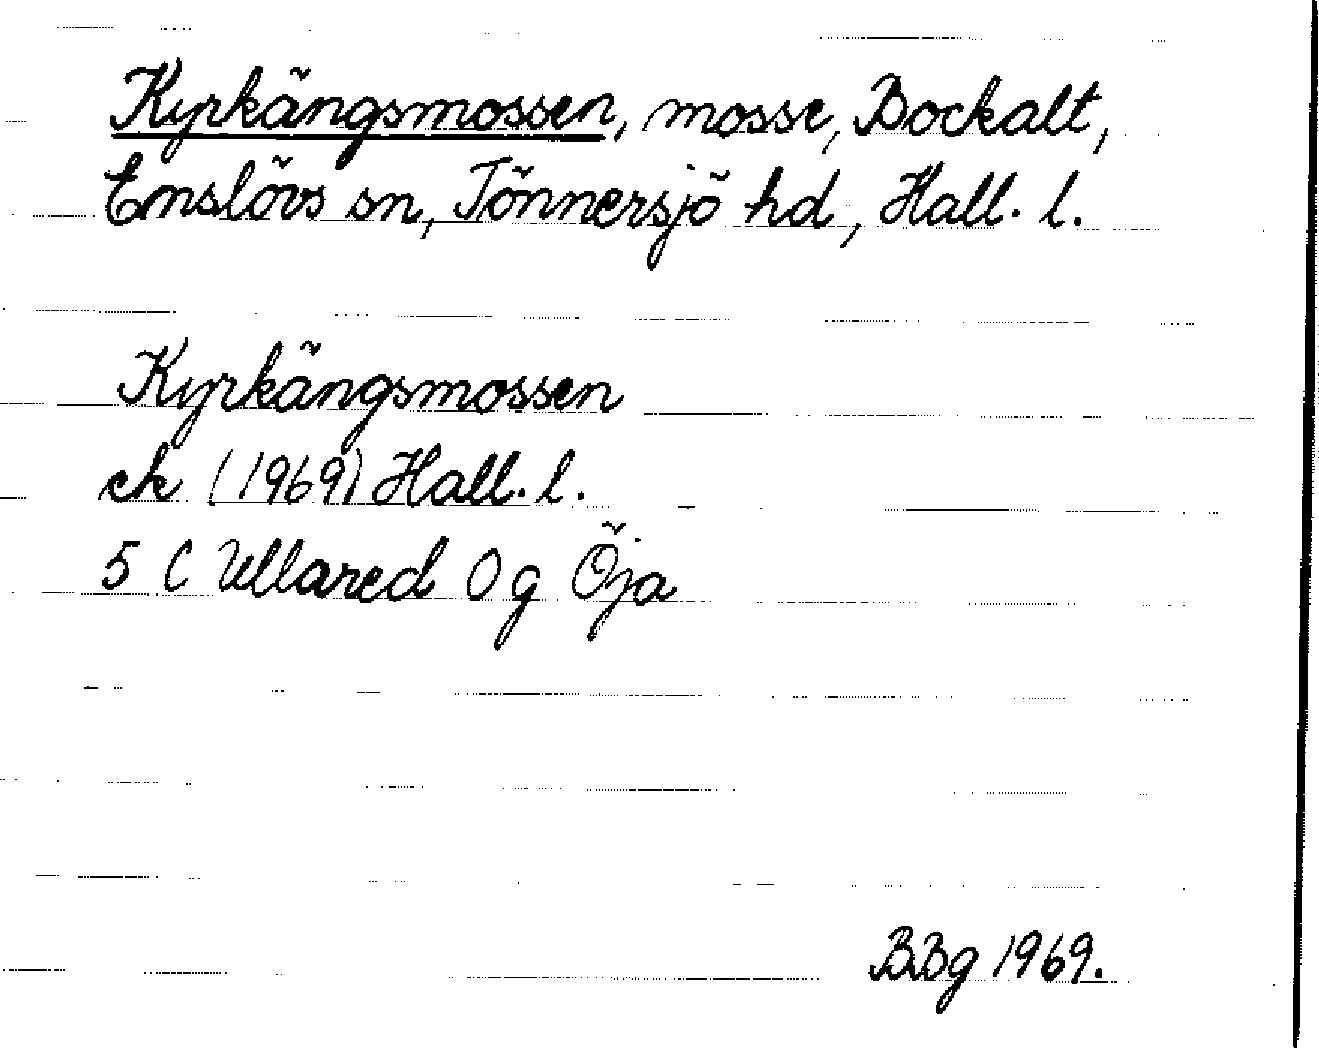 Kyrkängsmossen, mosse, Bockalt,
Enslövs sn, Tönnersjö hd, Hall. l.
Kyrkängsmossen
ek (1969) Hall. l.
5 C Ullared 0 g Öja
BBg 1969.